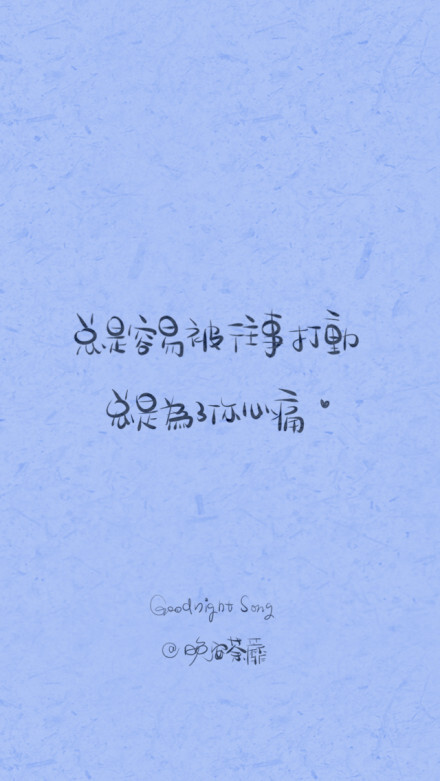 总是容易被往事打動
总是為了你心痛
Goodnight Song
@晚安荼靡